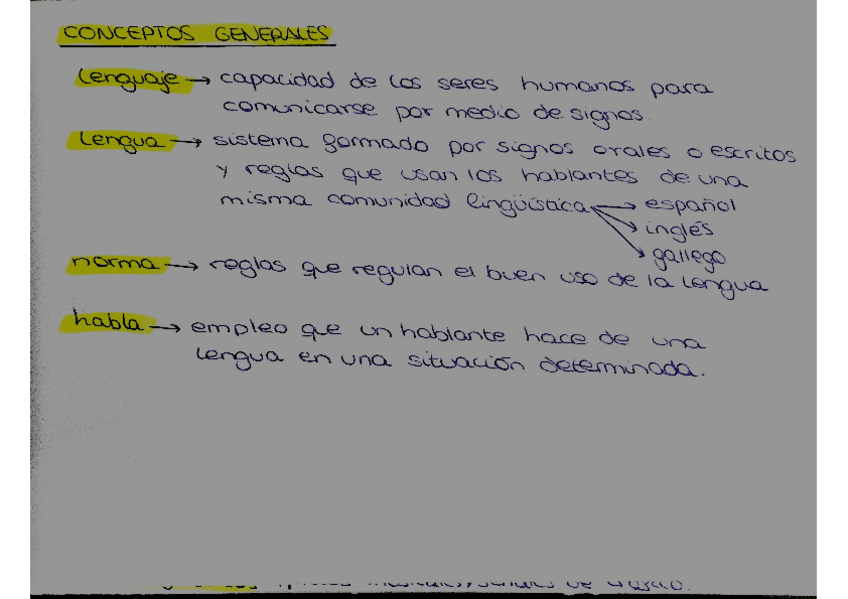 CONCEPTOS GENERALES
lenguaje → capacidad de los seres humanos para
comunicarse por medio de signos.
lengua → sistema formado por signos orales o escritos
y reglas que usan los hablantes de una
misma comunidad lingüística → español
→ inglés
→ gallego
norma → reglas que regulan el buen uso de la lengua
habla → empleo que un hablante hace de una
lengua en una situación determinada.